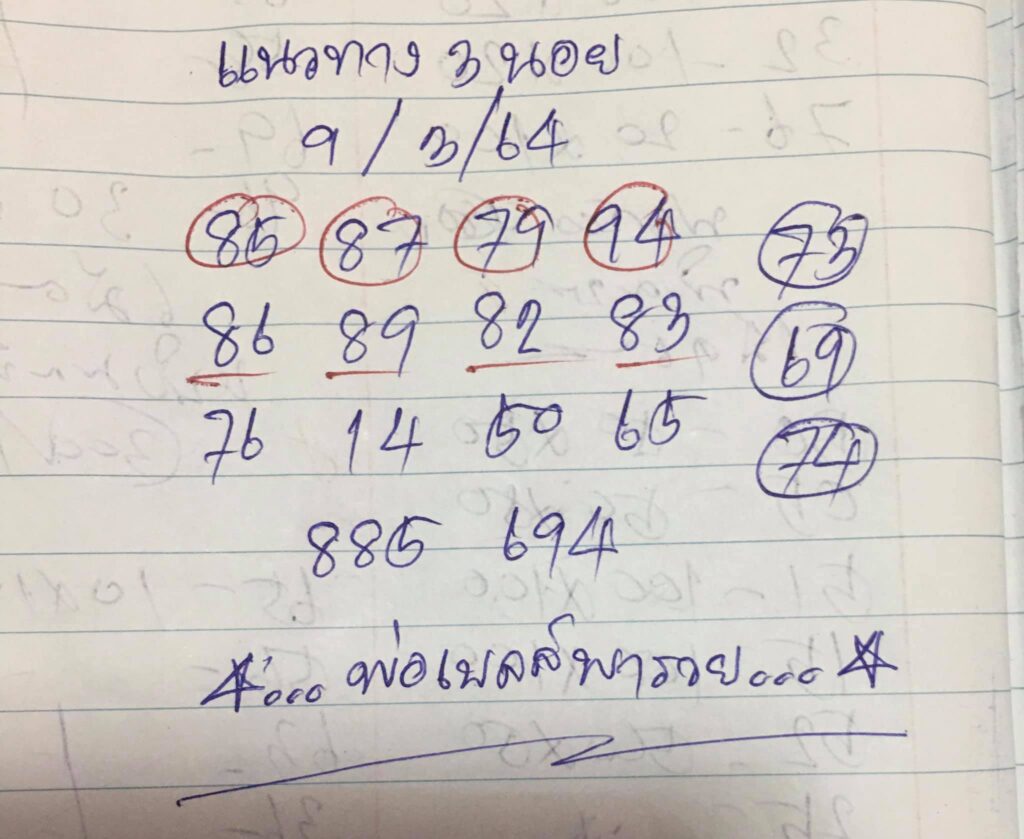 แนวทาง 3 นอย
9/3/64
85 87 79 94 73
86 89 82 83 69
76 14 50 65 74
885 694
... พ่อเบลล์พารวย...